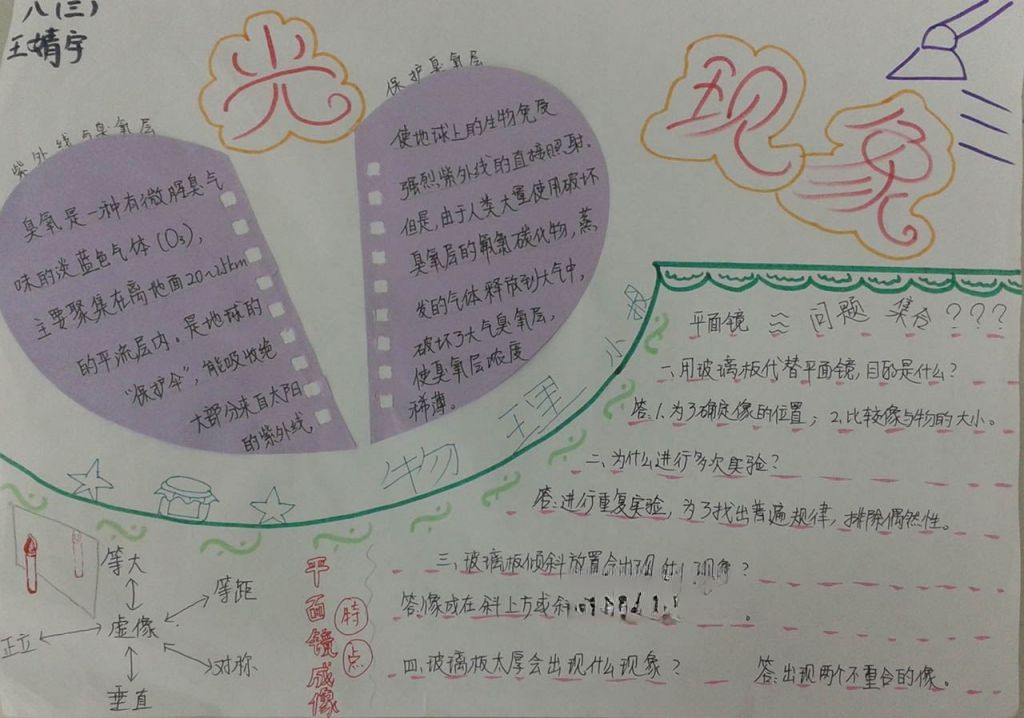 八(三)
王婧宇
光
现象
紫外线与臭氧层
臭氧是一种有微腥臭气
味的淡蓝色气体(O₃),
主要聚集在离地面20~25km
的平流层内。是地球的
“保护伞”,能吸收绝
大部分来自太阳
的紫外线
保护臭氧层
使地球上的生物免受
强烈紫外线的直接照射.
但是,由于人类大量使用破坏
臭氧层的氟氯碳化物,蒸
发的气体释放到大气中,
破坏了大气臭氧层,
使臭氧层浓度
稀薄。
物理小
平面镜 ≈ 问题集合???
一、用玻璃板代替平面镜,目的是什么?
答:1.为了确定像的位置;2.比较像与物的大小。
二、为什么进行多次实验?
答:进行重复实验,为了找出普遍规律,排除偶然性。
三、玻璃板倾斜放置会出现什么现象?
答:像成在斜上方或斜
四、玻璃板太厚会出现什么现象?
答:出现两个不重合的像。
平面镜成像
特点
等大
等距
正立
虚像
对称
垂直